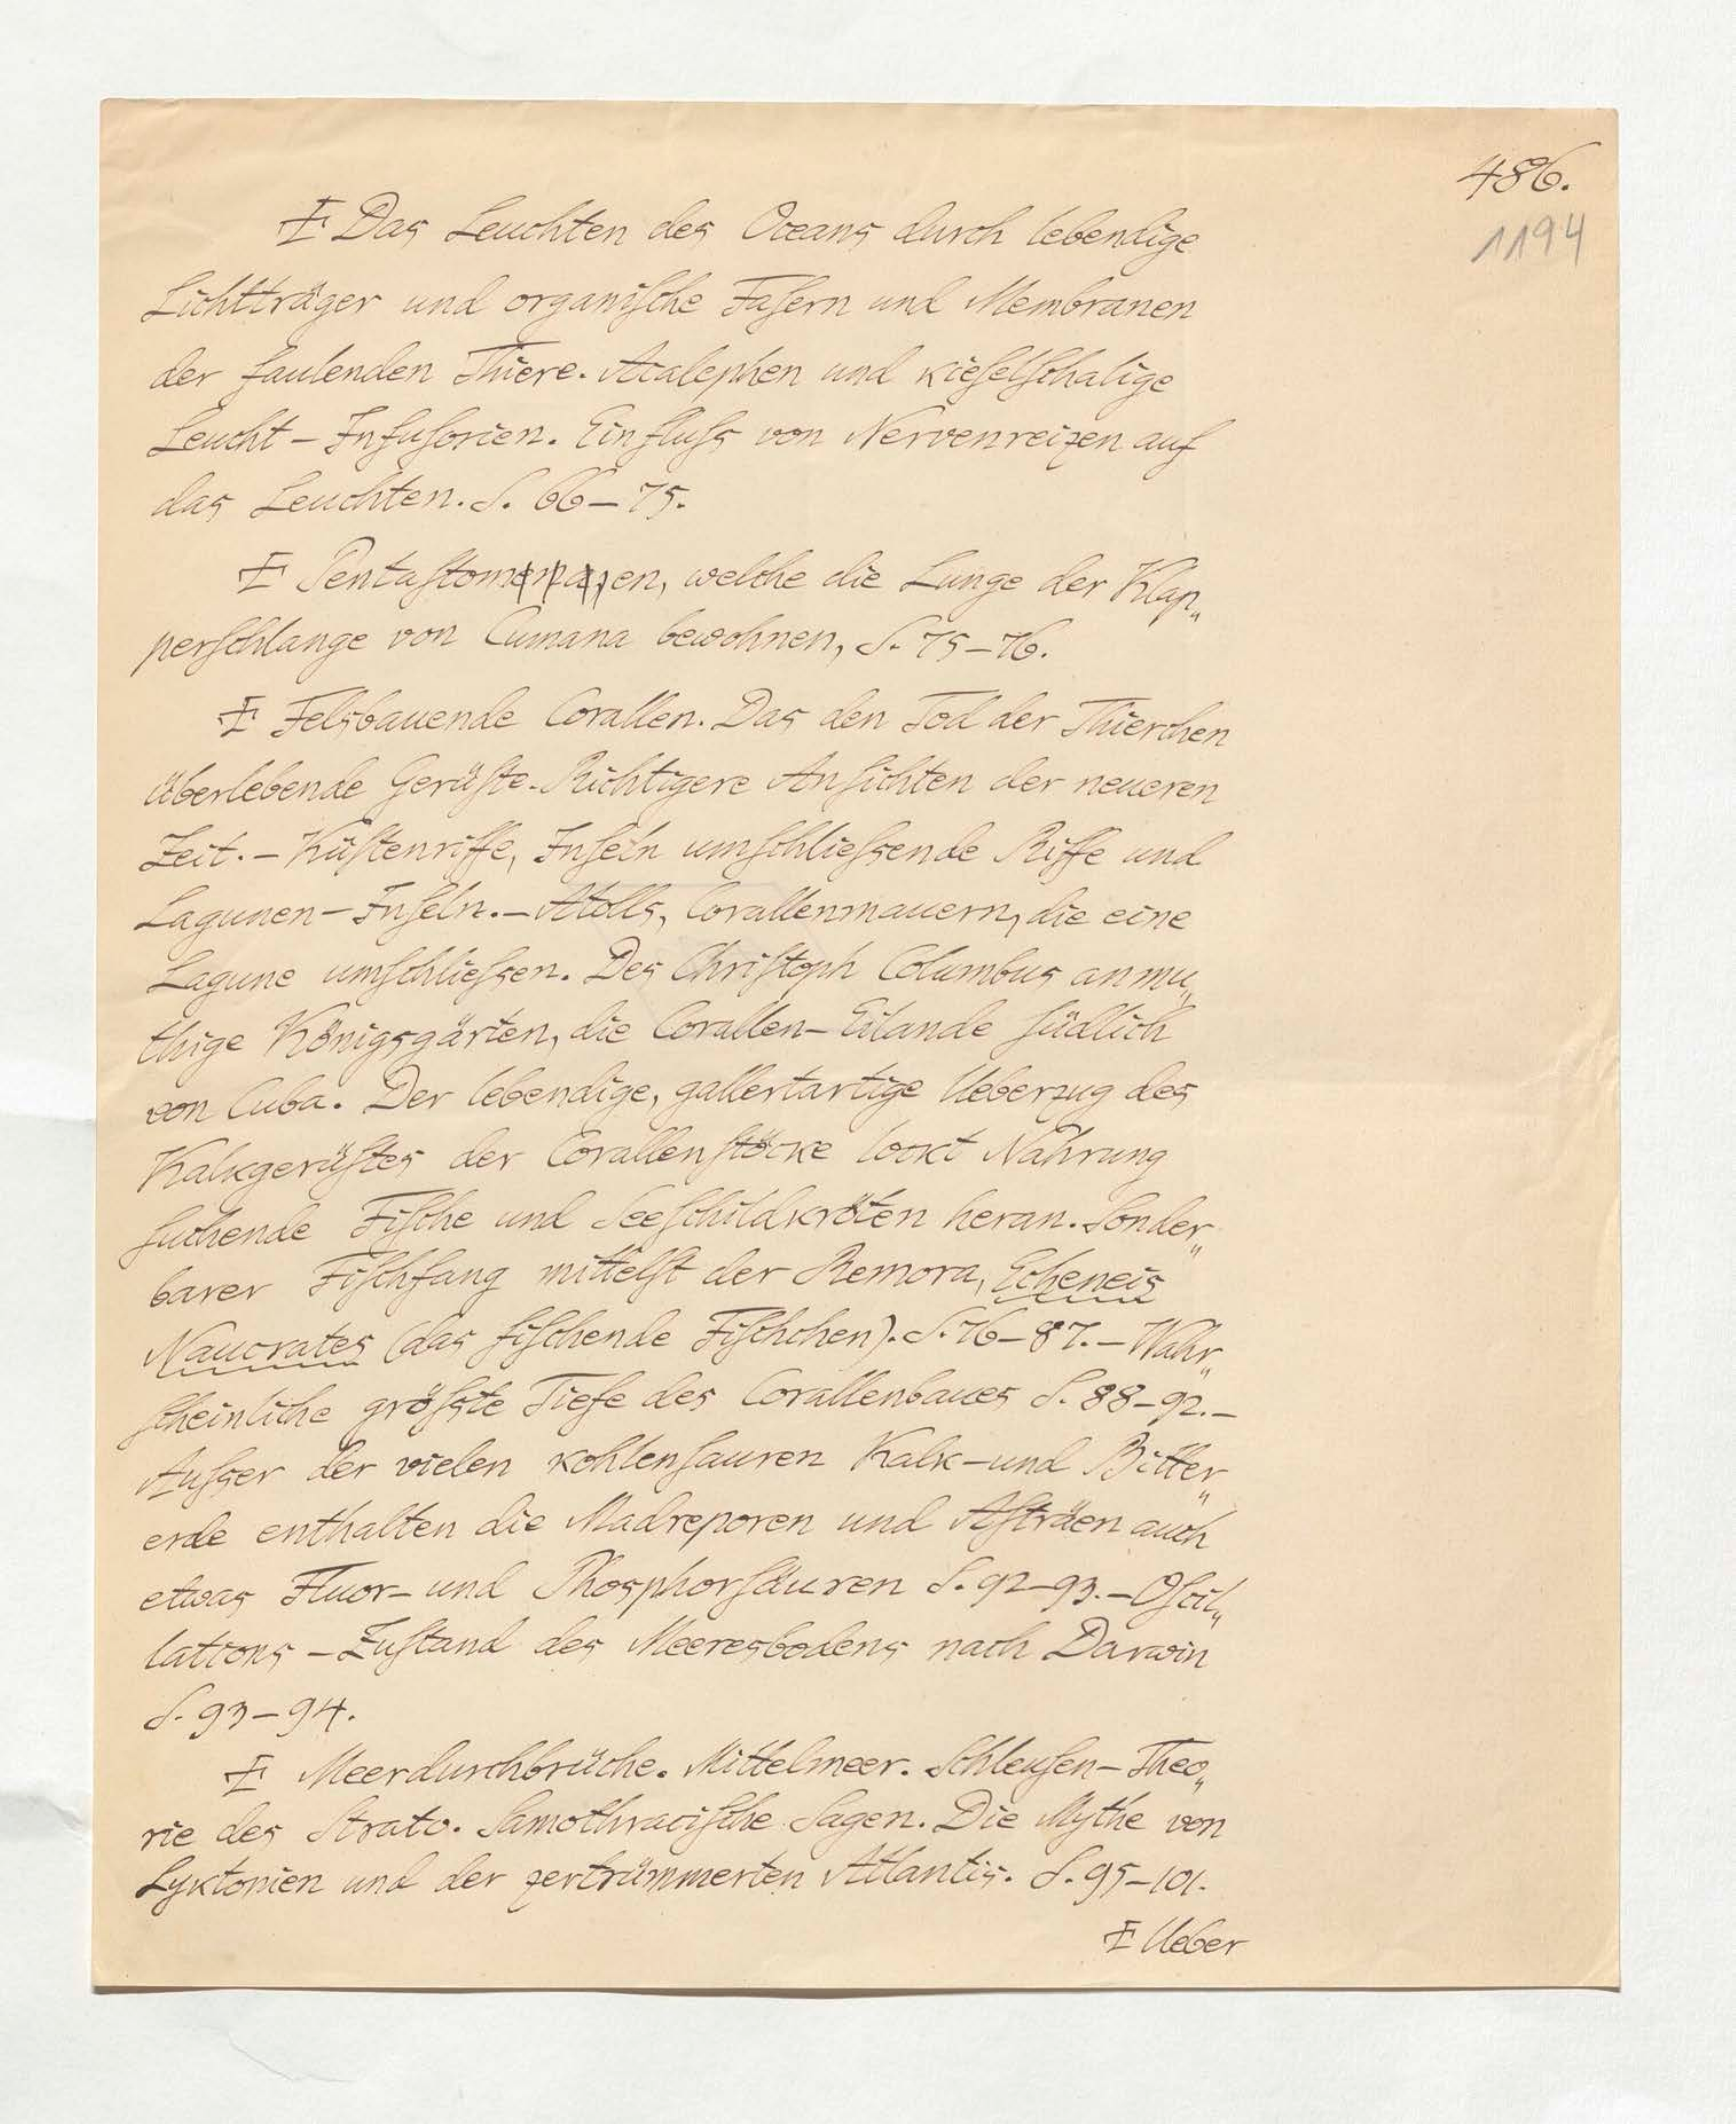 486.
1194
Das Leuchten des Oceans durch lebendige
Lichtträger und organiſche Faſern und Membranen
der faulenden Thiere. Acalephen und kieſelſchalige
Leucht-Infuſorien. Einfluſs von Nervenreizen auf
das Leuchten. S. 66-75.
Pentaſtomen, welche die Lunge der Klap„
perſchlange von Cumana bewohnen, S. 75-76.
Felsbauende Corallen. Das den Tod der Thierchen
überlebende Gerüſte. Richtigere Anſichten der neueren
Zeit. - Küſtenriffe, Inſeln umſchlieſsende Riffe und
Lagunen-Inſeln. - Atolls, Corallenmauern, die eine
Lagune umſchlieſsen. Des Chriſtoph Columbus anmu„
thige Königsgärten, die Corallen-Eilande ſüdlich
von Cuba. Der lebendige, gallertartige Ueberzug des
Kalkgerüſtes der Corallenſtöcke lockt Nahrung
ſuchende Fiſche und Seeſchildkröten heran. Sonder„
barer Fiſchfang mittelſt der Remora, Echeneis
Naucrates (das fiſchende Fiſchchen). S. 76-87. - Wahr„
ſcheinliche gröſste Tiefe des Corallenbaues S. 88-92. -
Auſser der vielen kohlenſauren Kalk- und Bitter„
erde enthalten die Madreporen und Aſträen auch
etwas Fluor- und Phosphorſäuren S. 92-93. - Oſcil„
lations-Zuſtand des Meeresbodens nach Darwin
S. 93-94.
Meerdurchbrüche. Mittelmeer. Schleuſen-Theo„
rie des Strato. Samothraciſche Sagen. Die Mythe von
Lyktonien und der zertrümmerten Atlantis. S. 95-101.
Ueber